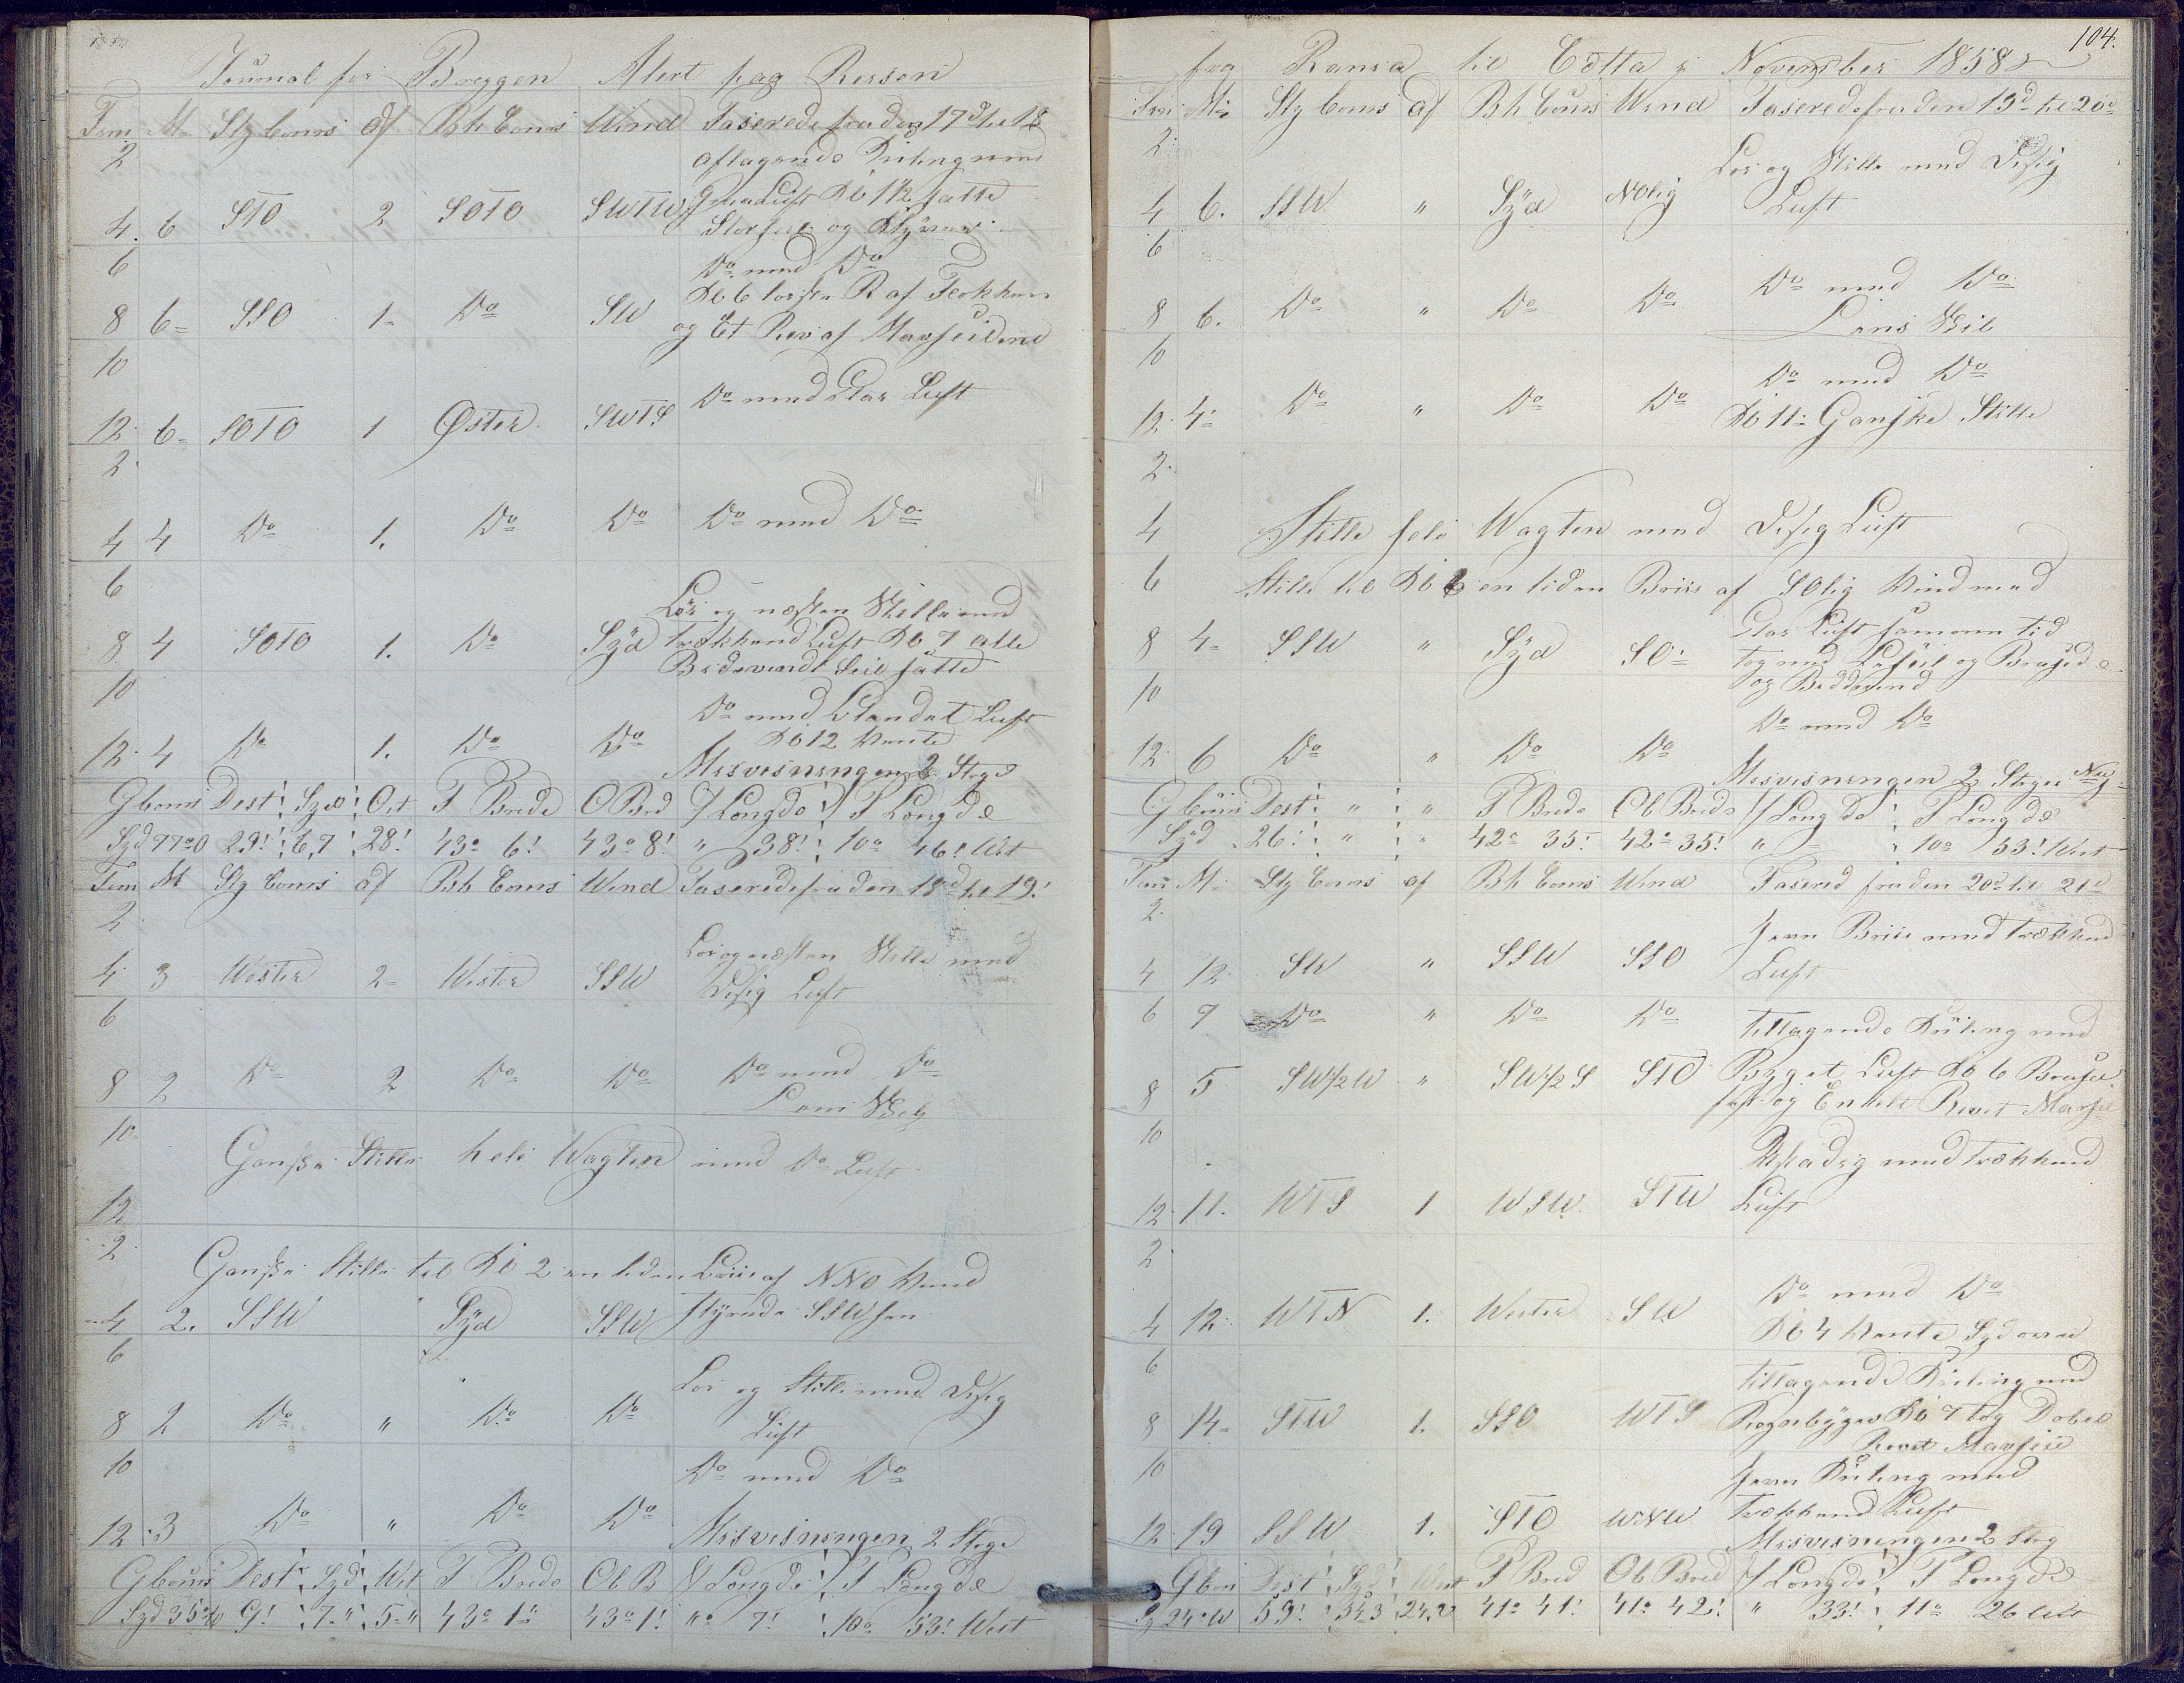 Journal for Breggen Alert paa Reisen
Tim M Sty Cours Af Bh Cours Wind Paserede fra den 17d til 18
2 aftagende Kuling med
4. 6 STO 2 SOTO SWTW Luft Kl 12 satte
Storseil og
6 Do med Do
8 6= SSO 1- Do SW Kl 6 R af Fokken
og Et Rev af Marseilene
10
12 6= SOTO 1 Øster SWTS Do med Klar Luft
2
4 4 Do 1. Do Do Do med Do
6 Lør og næsten Stille med
8 4 SOTO 1. Do Syd trækkend Luft Kl 7 alle
Bidevinds Seil satte
10 Do med blandet Luft
12. 4 Do 1. Do Do Kl 12 vente
Misvisningen 2 Streg
G Cours Dest: Syd: Ost P Brede O Bred Longde P Longde
Syd 77o O 29! 6,7 28! 43o 6! 43o 8! " 38! 10o 46! West
Tim M Sty Cours af Bh Cours Wind Paserede fra den 18d til 19!
2
4 3 Wester 2- Wester SSW Lør og næsten Stille med
Disig Luft
6
8 2 Do 2 Do Do Do med Do
Lens
10 Ganske Stille hele Wagten med Do Luft
12
2 Ganske Stille til Kl 2 en liden Briis af NNO Wind
4 2. SSW Syd SSW styrende SSW
6
8 2 Do " Do Do Lør og Stille med Disig
Luft
10 Do med Do
12 3 Do " Do Do
Misvisningen 2 Strege
G Cours Dest: Syd: West P Brede Ob B Longde P Longde
Syd 35o W 9! 7-" 5-" 43o 1" 43o 1! "o 7! 10o 53! West
104.
fra Ransa til Cetta i November 1858
Tim M= Sty Cours af Bh Cours Wind Paserede fra den 19d til 20d
2 Lør og Stille med Disig
4 6. SSW " Syd NOlig Luft
6
8 6. Do " Do Do Do med Do
Lens
10
12. 4= Do " Do Do Do med Do
Kl 11= Ganske Stille
2.
4 Stille hele Wagten med Disig Luft
6 Stille til Kl 6 en liden Briis af SOlig Wind med
8 4= SSW " Syd SO= Klar Luft samme tid
tog ned og
10 og
12 6 Do " Do Do Do med Do
Misvisningen 2 Streger NW
G Cours Dest: " " P Brede Ob Brede Longde P Longde
Syd 26! " " 42o 35! 42o 35! " = 10o 53! West
Tim M= Sty Cours af Bh Cours Wind Pasered fra den 20d til 21d
2. Jevn Briis med trækkend
4 12 SW " SSW SSO Luft
6 7 Do " Do Do Tiltagende Kuling med
8 5 SW1/2W " SW1/2S STO Byget Luft Kl 6
fast og Enkelt Revet Marseil
10 med trækkend
12 11. WTS 1 WSW. STW Luft
2
4 12 WTN 1. Wester SW Do med Do
Kl 4 vente Sydover
6 Tiltagende Kuling med
8 14= STW 1. SSO WTS Regnbyger Kl 7 tog Dobel
Revet Marseil
10 Jevn Kuling med
12 19 SSW 1. STO WNW trækkend Luft
Misvisningen 2 streg
G Cors Dest: Syd: West P Bred Ob Bred Longde P Longde
Sy 24o W 59! 54,3 24,2 41o 41! 41o 42! " 33! 11o 26 West